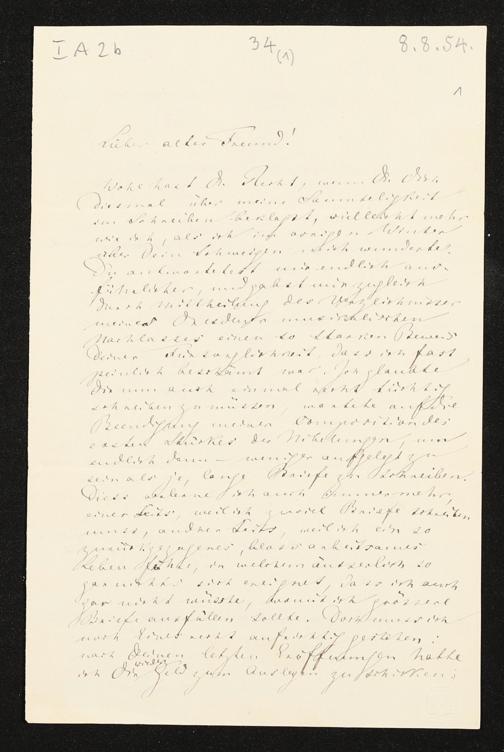 I A 2b
34 (1)
8.8.54.
1
Lieber alter Freund!
Wohl hast Du Recht, wenn Du Dich
diesmal über meine Saumseligkeit
im Schreiben beklagst, vielleicht mehr
wie ich, als ich im vorigen Winter
über Dein Schweigen mich wunderte.
Du antwortetest mir endlich aus-
führlicher, und gabst mir zugleich
durch Mittheilung des Verzeichnisses
meines Dresdener musikalischen
Nachlasses einen so starken Beweis
Deiner Fürsorglichkeit, dass ich fast
peinlich beschämt war. Ich glaubte
Dir nun auch einmal recht tüchtig
schreiben zu müssen, wartete auf die
Beendigung meiner Composition des
ersten Stückes der Nibelungen, um
endlich dann – weniger aufgelegt zu
sein als je, lange Briefe zu schreiben.
Diess verlerne ich auch immer mehr,
einer Seits, weil ich zuviel Briefe schreiben
muss, andrer Seits, weil ich ein so
zurückgezogenes, bloss arbeitsames
Leben führe, in welchem äusserlich so
gar nichts sich ereignet, dass ich auch
gar nicht wüsste, womit ich grössere
Briefe ausfüllen sollte. Doch muss ich
noch Eines recht aufrichtig gestehen:
nach Deinen letzten Eröffnungen hatte
ich Dir wieder Geld zum Auslegen zu schicken: